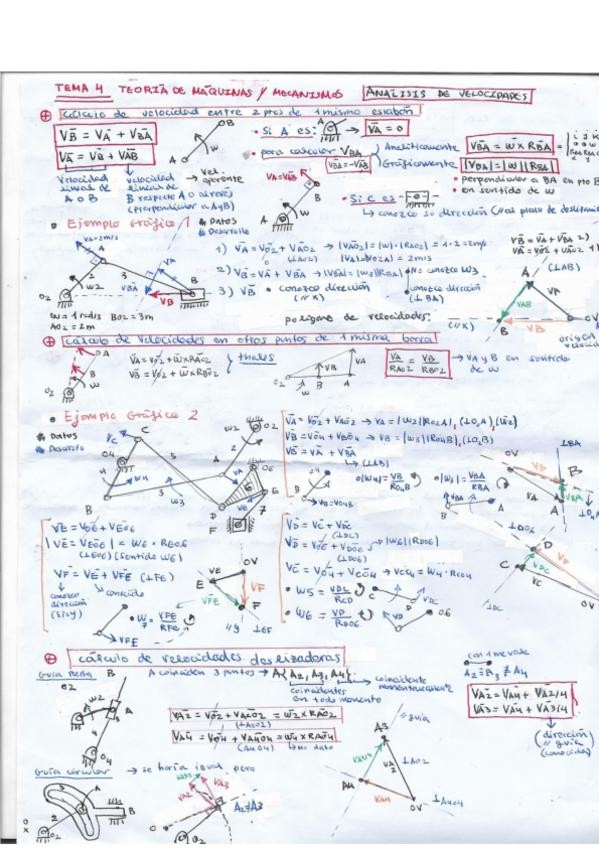 TEMA 4 TEORÍA DE MÁQUINAS Y MECANISMOS ANÁLISIS DE VELOCIDADES
⊕ Cálculo de velocidad entre 2 ptos de 1 mismo eslabón
VB = VA + VBA
VA = VB + VAB
velocidad
lineal de
A o B
velocidad
lineal de
B respecto A o al revés
(perpendicular a A y B)
• Si A es: → VA = 0
• para calcular VBA
VBA = -VAB
Analíticamente
VBA = w × RBA =
Gráficamente
|VBA| = |w||RBA|
• perpendicular a BA en pto B
• en sentido de w
VA = VAB
• Si C es
↳ conozco su dirección
• Ejemplo Gráfico 1
* Datos
* Desarrollo
VA = 2m/s
1) VA = VO2 + VAO2 → |VAO2| = |w|·|RAO2| = 1·2 = 2m/s
(⊥AO2) |VA| = |VO2A| = 2m/s
2) VB = VA + VBA → |VBA| = |w3||RBA| No conozco w3
conozco dirección
(⊥ BA)
3) VB • conozco dirección
(// X)
w = 1 rad/s BO2 = 3m
AO2 = 2m
polígono de velocidades:
VB = VA + VBA 2)
VA = VO2 + VAO2 1)
(⊥AB)
(// X)
⊕ Cálculo de velocidades en otros puntos de 1 misma barra
VA = VO2 + w × RAO2
VB = VO2 + w × RBO2
} thales
VA/RAO2 = VB/RBO2
→ VA y B en sentido
de w
• Ejemplo Gráfico 2
* Datos
* Desarrollo
VA = VO2 + VAO2 → VA = |w2||RO2A|, (⊥O2A), (w2)
VB = VO4 + VBO4 → VB = |w3||RO4B|, (⊥O2B)
VB = VA + VBA
↳ (⊥AB)
• |w4| = VB/RO4B
• |w3| = VBA/RBA
VE = VO6 + VEO6
|VE = VEO6| = W6 · REO6
(⊥EO6) (Sentido W6)
VF = VE + VFE (⊥FE)
conozco
dirección
(eje y)
conocido
• W7 = VFE/RFE
VD = VC + VDC
(⊥DC)
VD = VO6 + VDO6 → |W6||RDO6|
(⊥DO6)
VC = VO4 + VCO4 → VCO4 = W4 · RCO4
• W5 = VDC/RCD
• W6 = VD/RDO6
⊕ cálculo de velocidades deslizaderas
Guía recta
A coinciden 3 puntos → A (A2, A3, A4)
coincidentes
en todo momento
coincidente
momentáneamente
con 1 me vale
A2 = A3 ≠ A4
VA2 = VO2 + VAO2 = w2 × RAO2
(⊥AO2)
VA4 = VO4 + VA4O4 = w4 × RAO4
(A4O4) ↳ no dato
VA2 = VA4 + VA2/4
VA3 = VA4 + VA3/4
(dirección
// guía
(conocida))
Guía circular → se haría igual pero
A2 ≠ A3